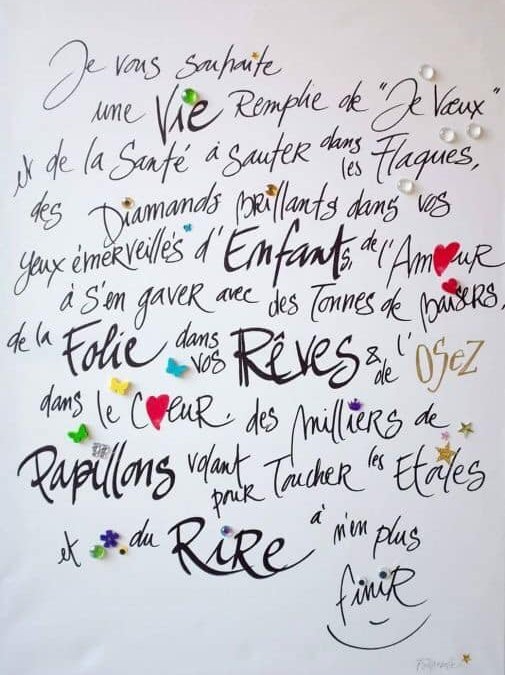 Je vous souhaite
une Vie Remplie de "Je Vœux"
et de la Santé à Sauter dans les Flaques,
des Diamands Brillants dans vos
yeux émerveillés d'Enfants, de l'Amour
à s'en gaver avec des Tonnes de Baisers,
de la Folie dans vos Rêves & de l'Osez
dans le Cœur. des Milliers de
Papillons volant pour Toucher les Etoiles
et du Rire à n'en plus
finir